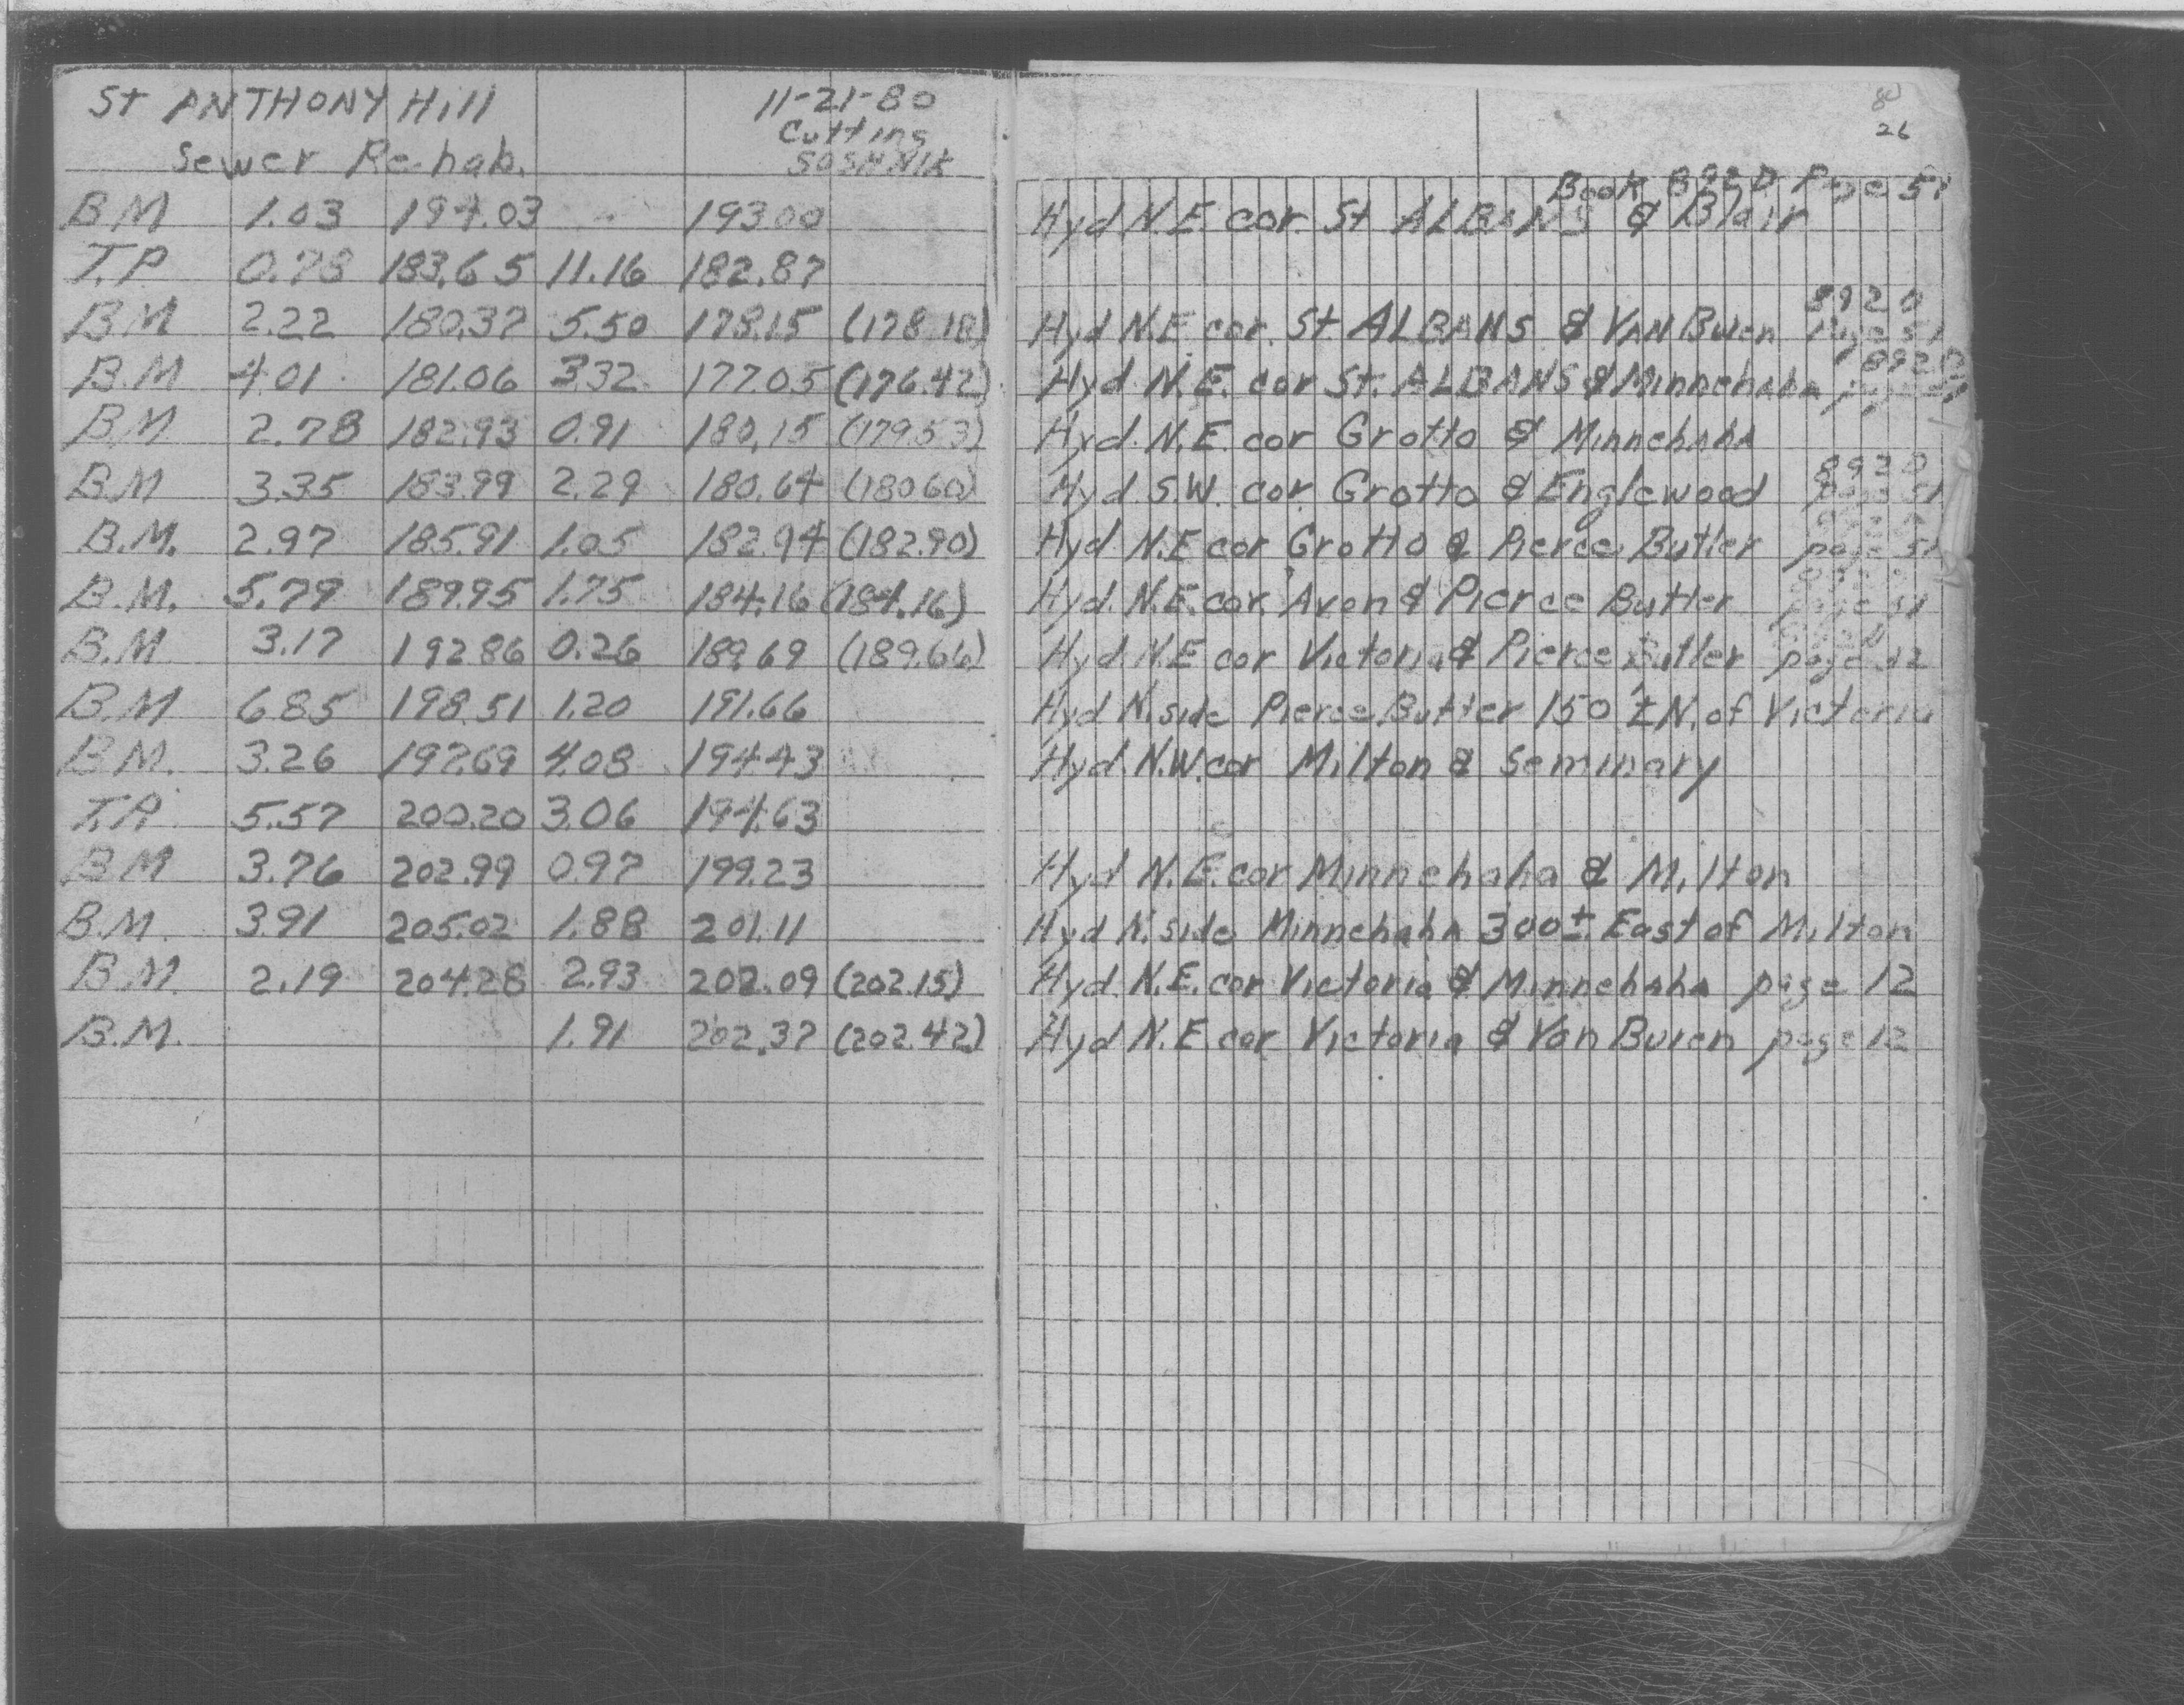 St ANTHONY Hill 11-21-80
Cutting
Sewer Re-hab. SOSHNIK
26
Book 892D Page 51
BM 1.03 194.03 193.00 Hyd N.E. cor. St ALBANS & Blair
T.P. 0.78 183.65 11.16 182.87
8920
BM 2.22 180.37 5.50 178.15 (178.18) Hyd N.E. cor. St. ALBANS & VAN Buren Page 51
8920
B.M 4.01 181.06 3.32 177.05 (176.42) Hyd. N.E. cor St. ALBANS & Minnehaha
BM 2.78 182.93 0.91 180.15 (179.53) Hyd. N.E. cor Grotto & Minnehaha
8920
BM 3.35 183.99 2.29 180.64 (180.60) Hyd. S.W. cor. Grotto & Englewood page 51
B.M. 2.97 185.91 1.05 182.94 (182.90) Hyd N.E cor Grotto & Pierce Butler page 51
B.M. 5.79 189.95 1.75 184.16 (184.16) Hyd. N.E. cor. Avon & Pierce Butler page 51
B.M. 3.17 192.86 0.26 189.69 (189.66) Hyd N.E cor Victoria & Pierce Butler page 12
B.M 6.85 198.51 1.20 191.66 Hyd N. side Pierce Butler 150'± N. of Victoria
B.M. 3.26 197.69 4.08 194.43 Hyd. N.W. cor Milton & Seminary
T.P. 5.57 200.20 3.06 194.63
B.M 3.76 202.99 0.97 199.23 Hyd N.E. cor Minnehaha & Milton
B.M. 3.91 205.02 1.88 201.11 Hyd N. side Minnehaha 300± East of Milton
B.M. 2.19 204.28 2.93 202.09 (202.15) Hyd. N.E. cor Victoria & Minnehaha page 12
B.M. 1.91 202.37 (202.42) Hyd N.E. cor Victoria & Van Buren page 12